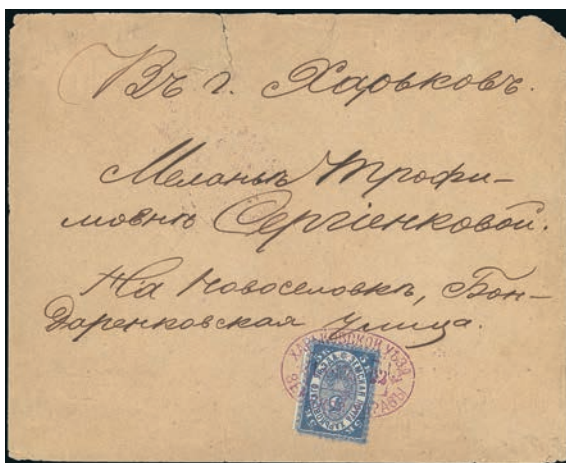 Въ г. Харьковъ.
Меланьѣ Трофи-
мовнѣ Сергіенковой.
На Новоселовкѣ, Бон-
даренковская улица.
ХАРЬКОВСКОЙ УѢЗД